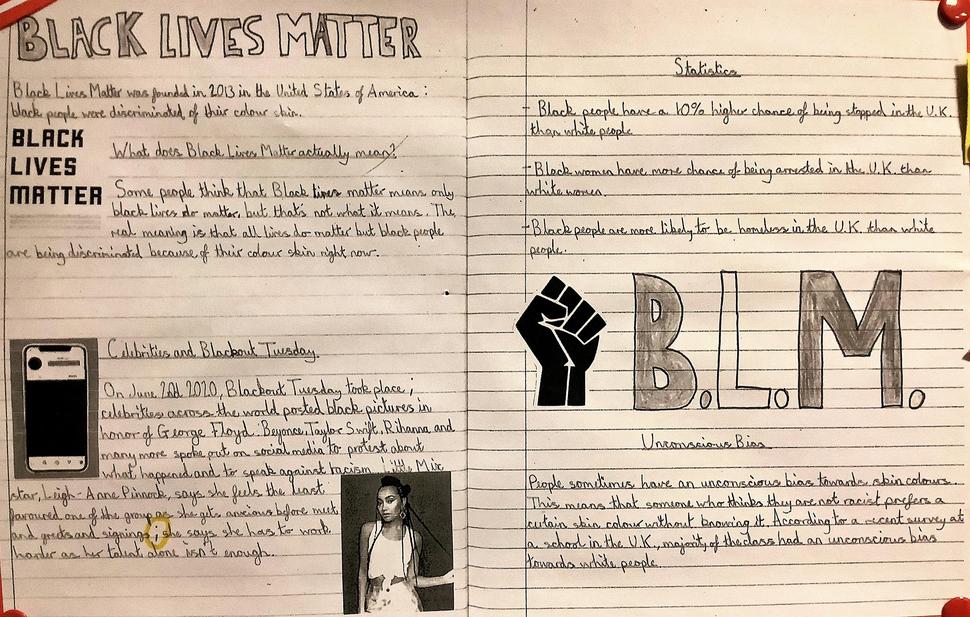 BLACK LIVES MATTER
Black Lives Matter was founded in 2013 in the United States of America :
black people were discriminated of their colour skin.
BLACK
LIVES
MATTER
What does Black Lives Matter actually mean?
Some people think that Black lives matter means only
black lives do matter, but that's not what it means. The
real meaning is that all lives do matter but black people
are being discriminated because of their colour skin right now.
Celebrities and Blackout Tuesday
On June 2nd 2020, Blackout Tuesday took place ;
celebrities across the world posted black pictures in
honor of George Floyd. Beyonce, Taylor Swift, Rihanna and
many more spoke out on social media to protest about
what happened and to speak against racism. Little Mix
star, Leigh-Anne Pinnock, says she feels the least
favoured one of the group as she gets anxious before meet
and greets and signings ; she says she has to work
harder as her talent alone isn't enough.
Statistics
- Black people have a 10% higher chance of being stopped in the U.K.
than white people
- Black women have more chance of being arrested in the U.K. than
white women.
- Black people are more likely to be homeless in the U.K. than white
people.
B.L.M.
Unconscious Bias
People sometimes have an unconscious bias towards skin colours.
This means that someone who thinks they are not racist prefers a
certain skin colour without knowing it. According to a recent survey at
a school in the U.K., majority of the class had an unconscious bias
towards white people.